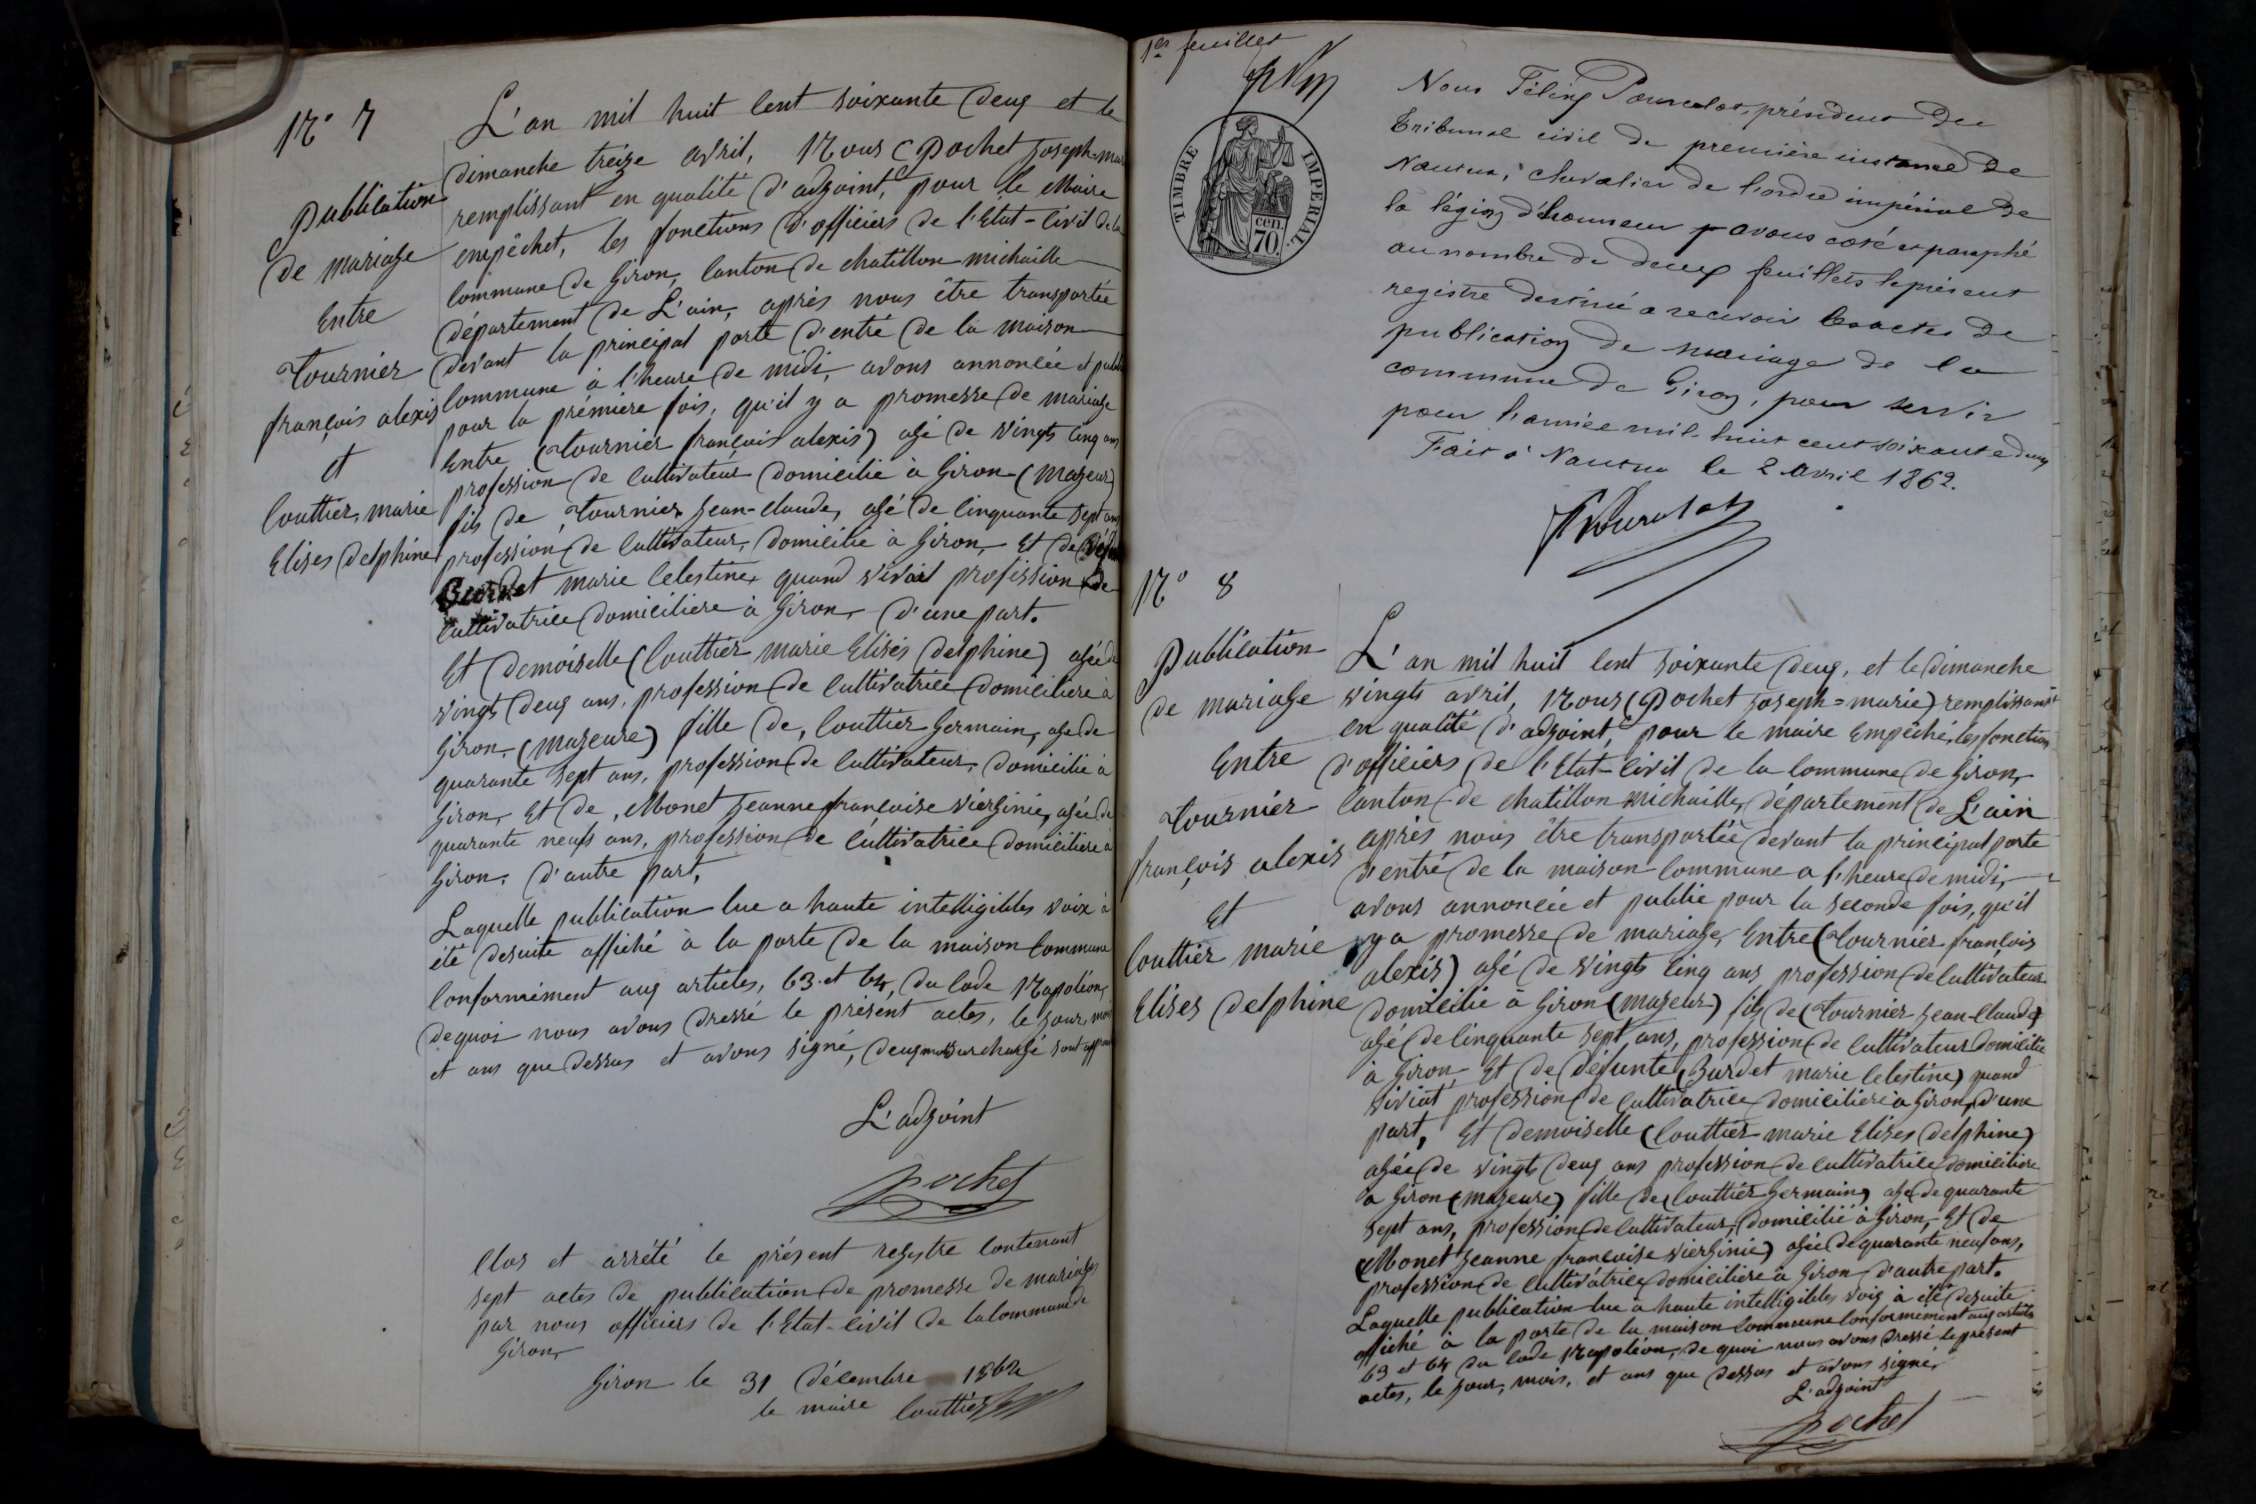 N° 7
Publication
de mariage
Entre
Tournier
françois alexis
et
Couttier, marie
Elises Delphine
L'an mil huit Cent soixante Deux et le
dimanche treize avril, Nous (Pochet Joseph-marie
remplissant en qualité d'adjoint, pour le Maire
empêchet, les fonctions d'officiers de l'Etat-Civil de la
Commune de Giron, Canton de chatillon michaille
département de L'ain, après nous être transportée
devant la principal porte d'entré de la maison
Commune à l'heure de midi, avons annoncée et publié
pour la première fois, qu'il y a promesse de mariage
Entre (Tournier françois alexis) agé de vingts Cinq ans
profession de Cultivateur domicilié à Giron (Majeur)
fils de Tournier Jean-Claude, agé de Cinquante sept ans
profession de Cultivateur, domicilié à Giron, Et de
Burdet marie Celestine, quand vivait profession de
Cultivatrice domiciliere à Giron, D'une part.
Et Demoiselle (Couttier marie Elises Delphine) agée de
vingts Deux ans, profession de Cultivatrice domiciliere à
Giron, (Majeure) fille de, Couttier Germain, age de
quarante sept ans, profession de Cultivateur, domicilié à
Giron, Et de, Monet Jeanne françoise vierginie, agée de
quarante neufs ans, profession de Cultivatrice domiciliere à
Giron, d'autre part,
Laquelle publication lue a haute intelligibles voix à
été desuite affiché à la porte de la maison Commune
Conformément aux articles, 63 et 64, du Code Napoléon,
dequoi nous avons dressé le présent actes, le jour, mois
et ans que dessus et avons signé, Deux mots surchargé sont
L'adjoint
Pochet
Clos et arrété le présent registre Contenant
sept actes de publication de promesse de mariages
par nous officiers de l'Etat-Civil de la Commune de
Giron,
Giron le 31 Décembre 1862
le maire Couttier
1er feuillet
TIMBRE IMPERIAL.
70 cen.
Nous Féling Pourcelot, président du
tribunal civil de première instance de
Nantua, chevalier de l'ordre impérial de
la légion d'honneur avons coté et paraphé
au nombre de deux feuillets le présent
registre destiné à recevoir les actes de
publication de mariage de la
commune de Giron, pour servir
pour l'année mil huit cent soixante deux
Fait à Nantua le 2 avril 1862.
N° 8
Publication
de mariage
Entre
Tournier
françois alexis
Et
Couttier marie
Elises Delphine
L'an mil huit Cent soixante Deux, et le dimanche
vingts avril, Nous (Pochet Joseph=marie) remplissant
en qualité d'adjoint, pour le maire Empêché, les fonction
d'officiers de l'Etat-Civil de la Commune de Giron,
Canton de chatillon michaille, département de L'ain
après nous être transportée devant la principal porte
d'entré de la maison Commune a l'heure de midi,
avons annoncée et publié pour la seconde fois, qu'il
y a promesse de mariage, Entre (Tournier françois
alexis) agé de vingts Cinq ans profession de Cultivateur
domicilié à Giron (Majeur) fils de (Tournier Jean-Claude)
agé de Cinquante sept ans, profession de Cultivateur domicilié
à Giron Et de Défunte (Burdet marie Celestine) quand
viviat profession de Cultivatrice domiciliere à Giron, d'une
part, Et Demoiselle (Couttier marie Elises Delphine)
agée de vingts Deux ans profession de Cultivatrice domiciliere
à Giron (majeure) fille de (Couttier Germain) age de quarante
sept ans, profession de Cultivateur, domicilié à Giron, Et de
(Monet Jeanne françoise vierginie) agée de quarante neuf ans,
profession de Cultivatrice domiciliere à Giron d'autre part.
Laquelle publication lue à haute intelligibles voix à été desuite
affiché à la porte de la maison Commune Conformément aux articles
63 et 64 du Code Napoléon, de quoi nous avons dressé le présent
actes, le jour, mois, et ans que dessus et avons signé,
L'adjoint
Pochet